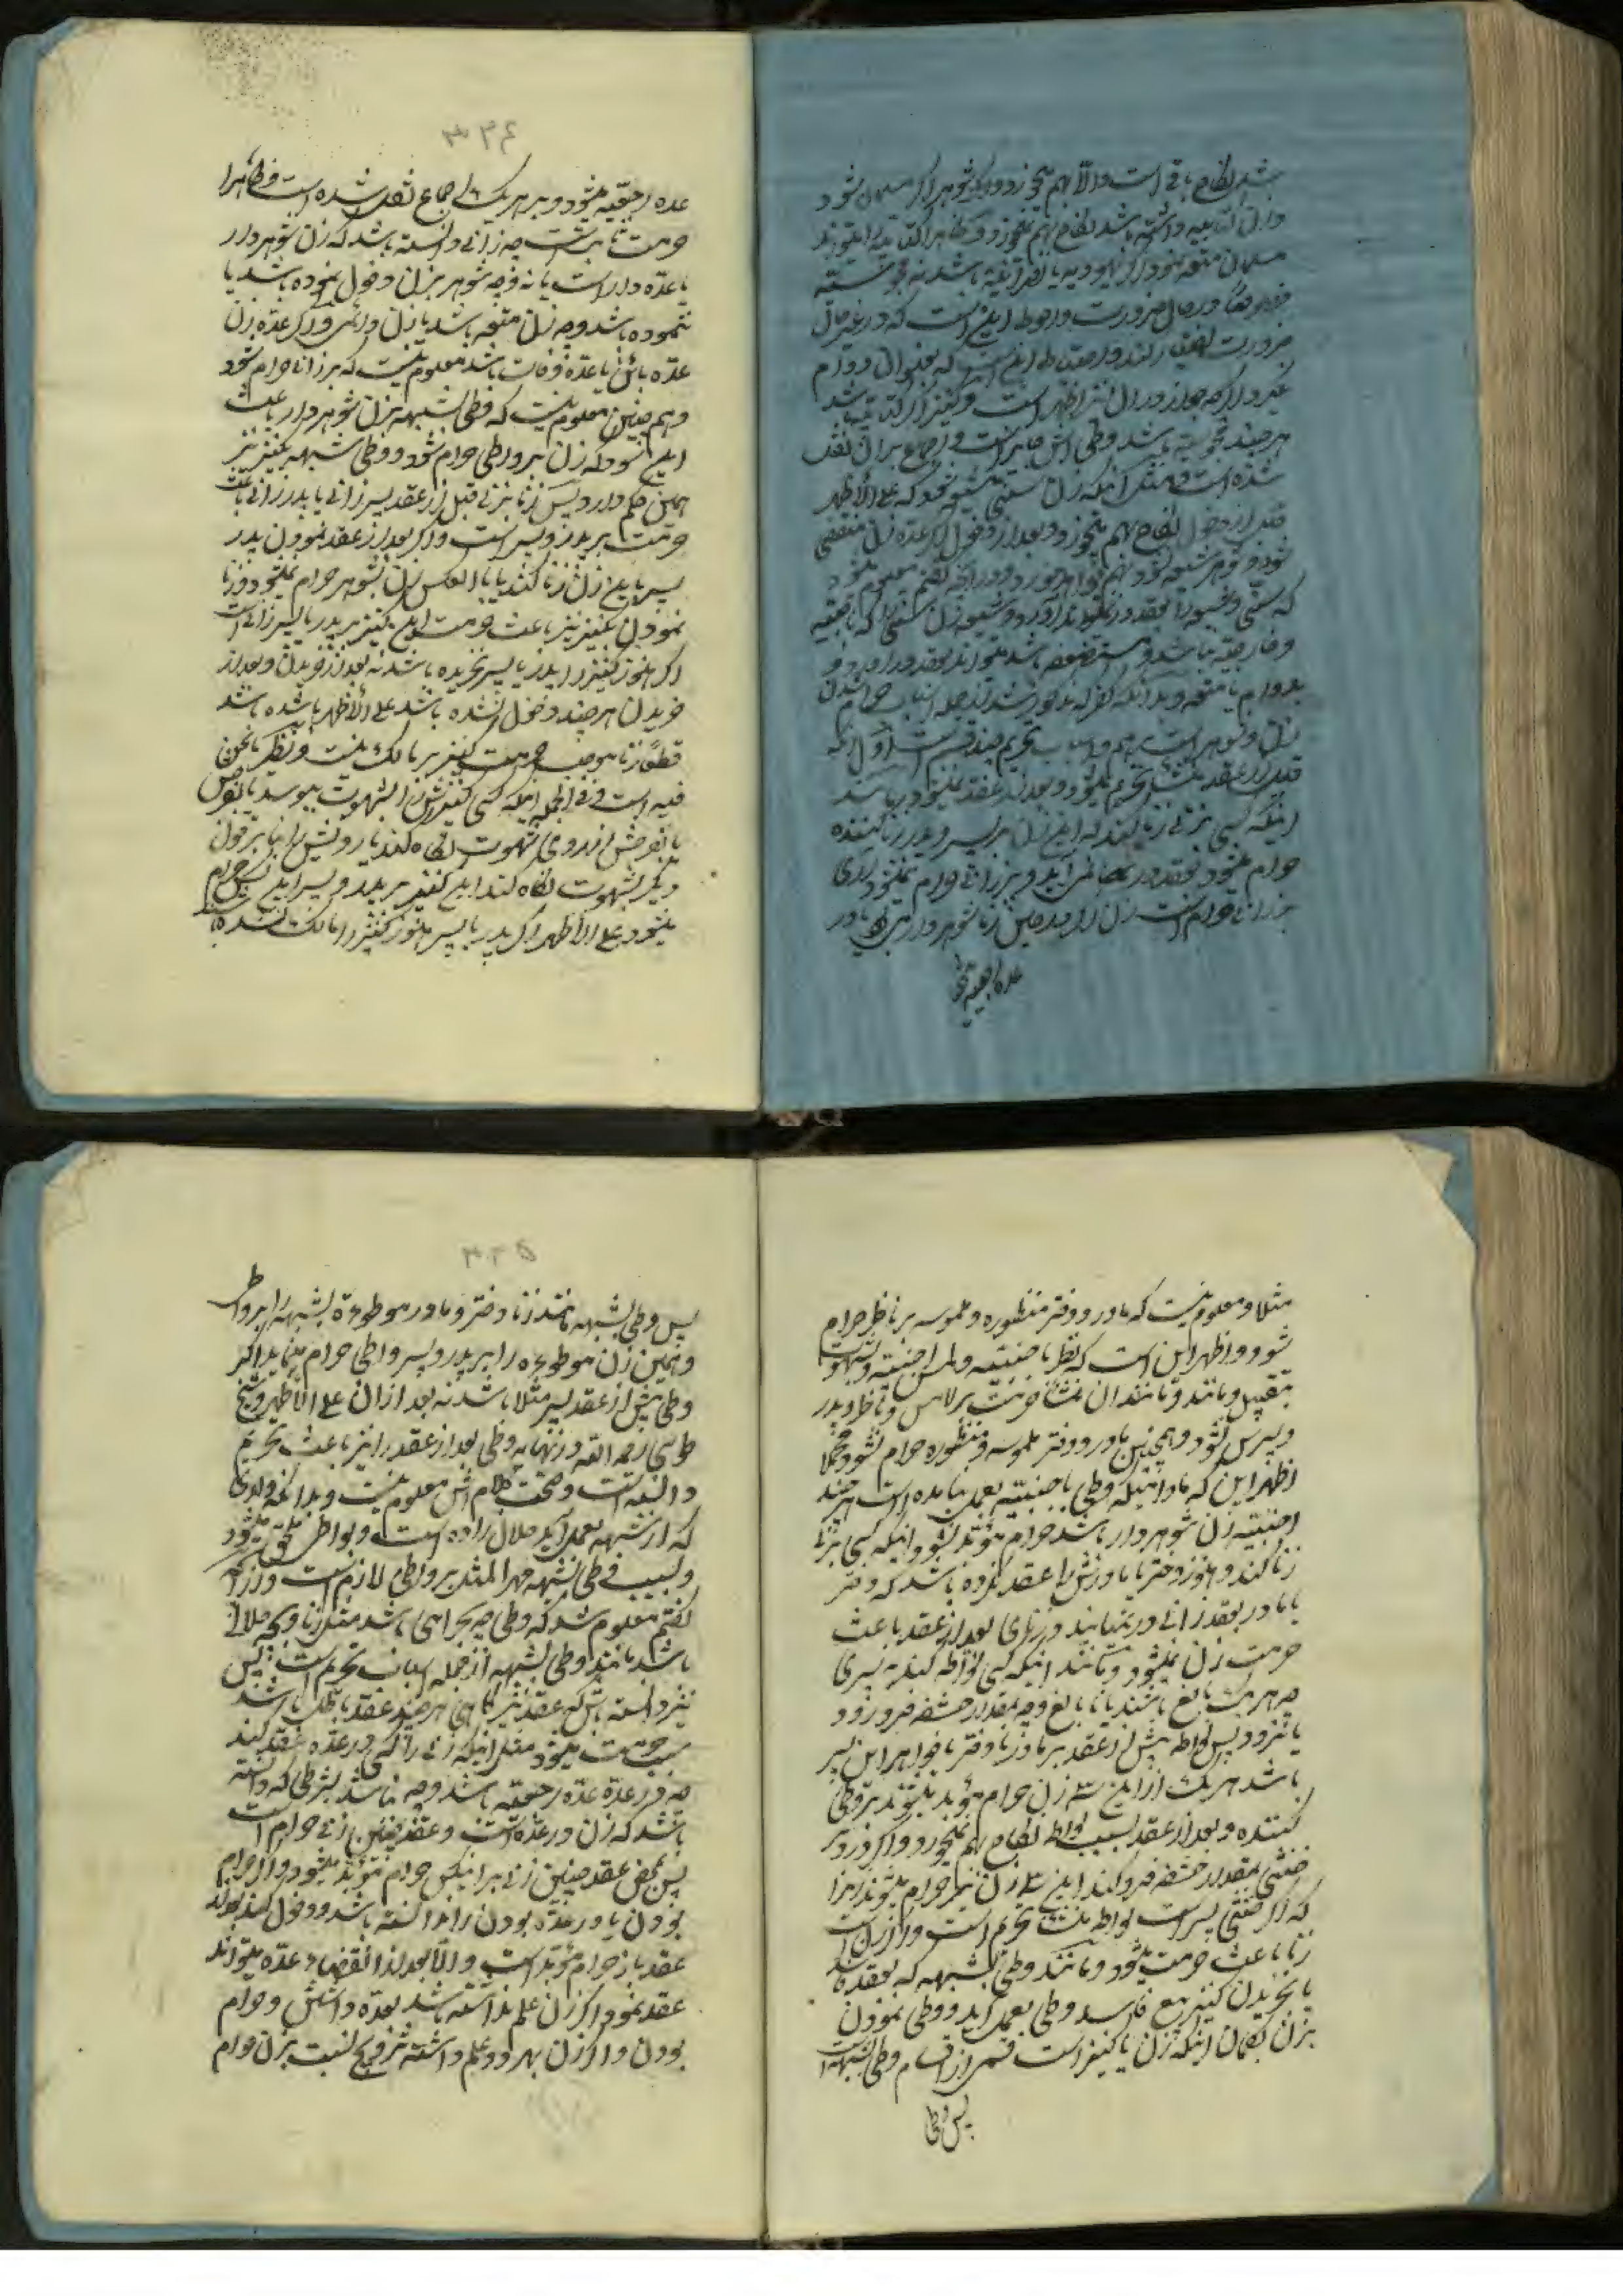 شد نکاح باقی است والا بهم میخورد و اگر شوهر اگر مسلمان شود
وزن کتابیه داشته باشد نکاح بهم نمیخورد و ظاهرا کتابیه را میتواند
مسلمان متعه نمود اگر یهودیه یا نصرانیه باشد نه مجوسیه
خصوصا در حال ضرورت و احوط این است که در غیر حال
ضرورت
غیر و اگر چه جواز در آن نیز اظهر است و کنیز اگر کتابیه باشد
هر چند مجوسیه باشد وطی اش جایز است و اجماع بر آن نقل
شده است و مثل اینکه زن سنی شیعه شود که علی الاظهر
قبل از دخول نکاح بهم میخورد و بعد از دخول اگر عده زن منقضی
شود و شوهر شیعه نشود بهم خواهد خورد و از آنچه گفتم معلوم میشود
که سنی زن شیعه را بعقد در نمیتواند آورد و شیعه زن سنی را که ناصبیه
و خارجیه نباشد و مستضعفه باشد میتواند بعقد در آورد
بدوام یا متعه و بدانکه کفر که مذکور شد از جمله اسباب حرام شدن
زن و شوهر است بر هم و اسباب تحریم چند قسم است اول آنکه
قبل از عقد منشأ تحریم میشود و بعد از عقد نمیشود مانند
اینکه کسی بزنی زنا کند که این زن بر پسر و پدر زنا کننده
حرام میشود بعقد در نمی آید و بر زانی حرام نمیشود بلی
بر زانی حرام است زن اگر در حین زنا شوهردار باشد یا در
عده رجعیه
۳۲۴
عده رجعیه میشود و بر هر یک اجماع نقل شده است و ظاهرا
حرمت ثابت است چه زانی دانسته باشد که زن شوهردار
یا عده دار است یا نه و چه شوهر بزن دخول نموده باشد یا
ننموده باشد و چه زن متعه باشد یا زن دائمی و اگر عده زن
عده بائن یا عده وفات باشد معلوم نیست که بر زانی حرام شود
و هم چنین معلوم نیست که وطی بشبهه بزن شوهردار باعث
این شود که زن بر واطی حرام شود و وطی شبهه بکنیز نیز
همین حکم دارد پس زنا بزنی قبل از عقد پسر زانی یا پدر زانی باعث
حرمت بر پدر و پسر است و اگر بعد از عقد نمودن پدر
پسر با این زن زنا کند یا بالعکس زن بشوهر حرام نمیشود و زنا
نمودن بکنیز نیز باعث حرمت این کنیز بر پدر یا پسر زانی است
اگر هنوز کنیز را پدر یا پسر نخریده باشد نه بعد از خریدن و بعد از
خریدن هر چند دخول نشده باشد علی الاظهر یا شده باشد
قطعا زنا موجب حرمت کنیز بر مالک نیست و نظیر مانحن
فیه است فی الجمله اینکه کسی کنیزش را بشهوت ببوسد یا بفرج
یا بفرجش از روی شهوت نگاه کند یا رویش را یا بر بدن
دیگر بشهوت نگاه کند این کنیز بر پدر و پسر این کس حرام
میشود علی الاظهر اگر پدر یا پسر هنوز کنیز را مالک نشده باشد
مثلا و معلوم نیست که مادر و دختر منظوره و ملموسه بر ناظر حرام
شود و اظهر این است که نظر باجنبیه و لمس اجنبیه و بشهوت
بتقبیل و مانند و مانند آن منشأ حرمت بر لامس و ناظر و پدر
و پسرش نشود و همچنین مادر و دختر ملموسه و منظوره حرام نشود مجملا
اظهر این که مادامیکه وطی باجنبیه بعمل نیامده است هر چند
اجنبیه زن شوهر دار باشد حرام مؤبد نشود و اینکه کسی بزنی
زنا کند و هنوز دختر یا مادرش را عقد نکرده باشد که دختر
یا مادر بعقد زانی در نمیآیند و زنای بعد از عقد باعث
حرمت زن نمیشود و مانند اینکه کسی لواطه کند به پسری
چه هر یک بالغ باشند یا نابالغ و چه بمقدار حشفه فرو رود
یا نرود پس لواطه پیش از عقد بر مادر یا دختر یا خواهر این پسر
باشد هر یک از این سه زن حرام مؤبد میشوند بر وطی
کننده و بعد از عقد بسبب لواطه نکاح بهم نمیخورد و اگر در دبر
خنثی بمقدار حشفه فرو کند این سه زن نیز حرام میشوند زیرا
که اگر خنثی پسر است لواطه منشأ تحریم است و اگر زن است
زنا باعث حرمت میشود و مانند وطی بشبهه که بعقد فاسد
یا بخریدن کنیز ببیع فاسد وطی بعمل آید و وطی نمودن
بزن بگمان اینکه زن یا کنیز است قسمی از اقسام وطی بشبهه است
پس وطی
۳۲۵
پس وطی بشبهه مانند زنا دختر و مادر موطوءه بشبهه را بر واطی
و همین زن موطوءه را بر پدر و پسر واطی حرام مینماید اگر
وطی پیش از عقد پسر مثلا باشد نه بعد از آن علی الاظهر و شیخ
طوسی رحمه الله در نهایه وطی بعد از عقد را نیز باعث تحریم
دانسته است و صحت کلام اش معلوم نیست و بدانکه ولدی
که از شبهه بعمل آید حلال زاده است و بواطی ملحق میشود
و بسبب وطی بشبهه مهر المثل بر واطی لازم است و از آنچه
گفتم معلوم شد که وطی چه بحرامی باشد مثل زنا و چه بحلالی
باشد مانند وطی بشبهه از جمله اسباب تحریم است پس
نیز دانسته باش که عقد نیز گاهی هر چند عقد باطل باشد
سبب حرمت میشود مثل اینکه زنی را کسی در عده عقد کند
چه در عده عده رجعیه باشد و چه نباشد بشرطی که دانسته
باشد که زن در عده است و عقد چنین زنی حرام است
پس بمحض عقد چنین زنی بر این کس حرام مؤبد میشود و اگر حرام
بودن یا در عده بودن را ندانسته باشد و دخول کند بعد از
عقد باز حرام مؤبد است والا بعد از انقضاء عده میتواند
عقد نمود و اگر زن علم نداشته باشد بعده داشتن و حرام
بودن و اگر زن بهر دو علم داشته تزویج نسبت بزن حرام